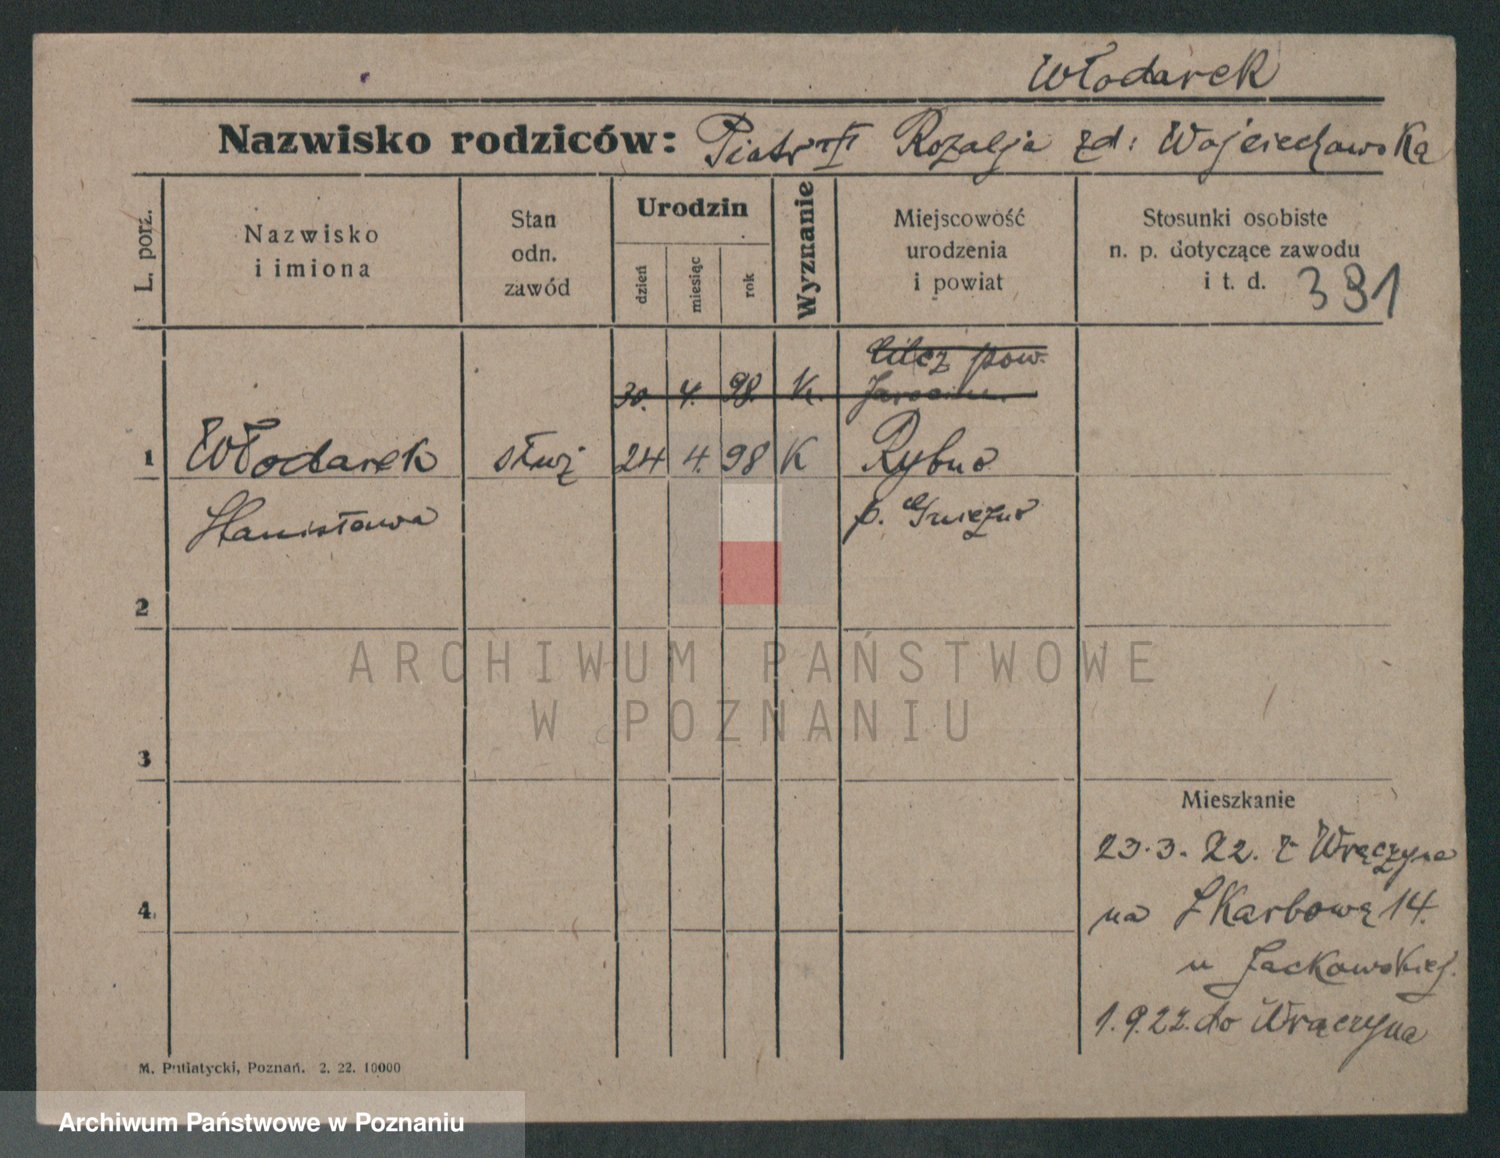 Włodarek
Nazwisko rodziców: Piotr Rozalja zd: Wojciechowska
L. porz.
Nazwisko
i imiona
Stan
odn.
zawód
Urodzin
dzień
miesiąc
rok
Wyznanie
Miejscowość
urodzenia
i powiat
Stosunki osobiste
n. p. dotyczące zawodu
i t. d. 391
pow.
30. 4. 98. K.
1 Włodarek służ 24 4. 98 K Rybno
Stanisława p. Gniezno
2
ARCHIWUM PAŃSTWOWE
W POZNANIU
3
Mieszkanie
23.3.22. z Wrączyna
4. na Skarbową 14.
u Jackowskiej.
1.9.22. do Wrączyna
M. Putiatycki, Poznań. 2. 22. 10000
Archiwum Państwowe w Poznaniu